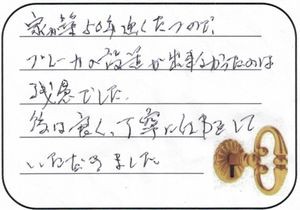 家が築50年近くたつので、
ブレーカの設置が出来なかったのは
残念でした。
後は早く、丁寧に仕事をして
いただきました